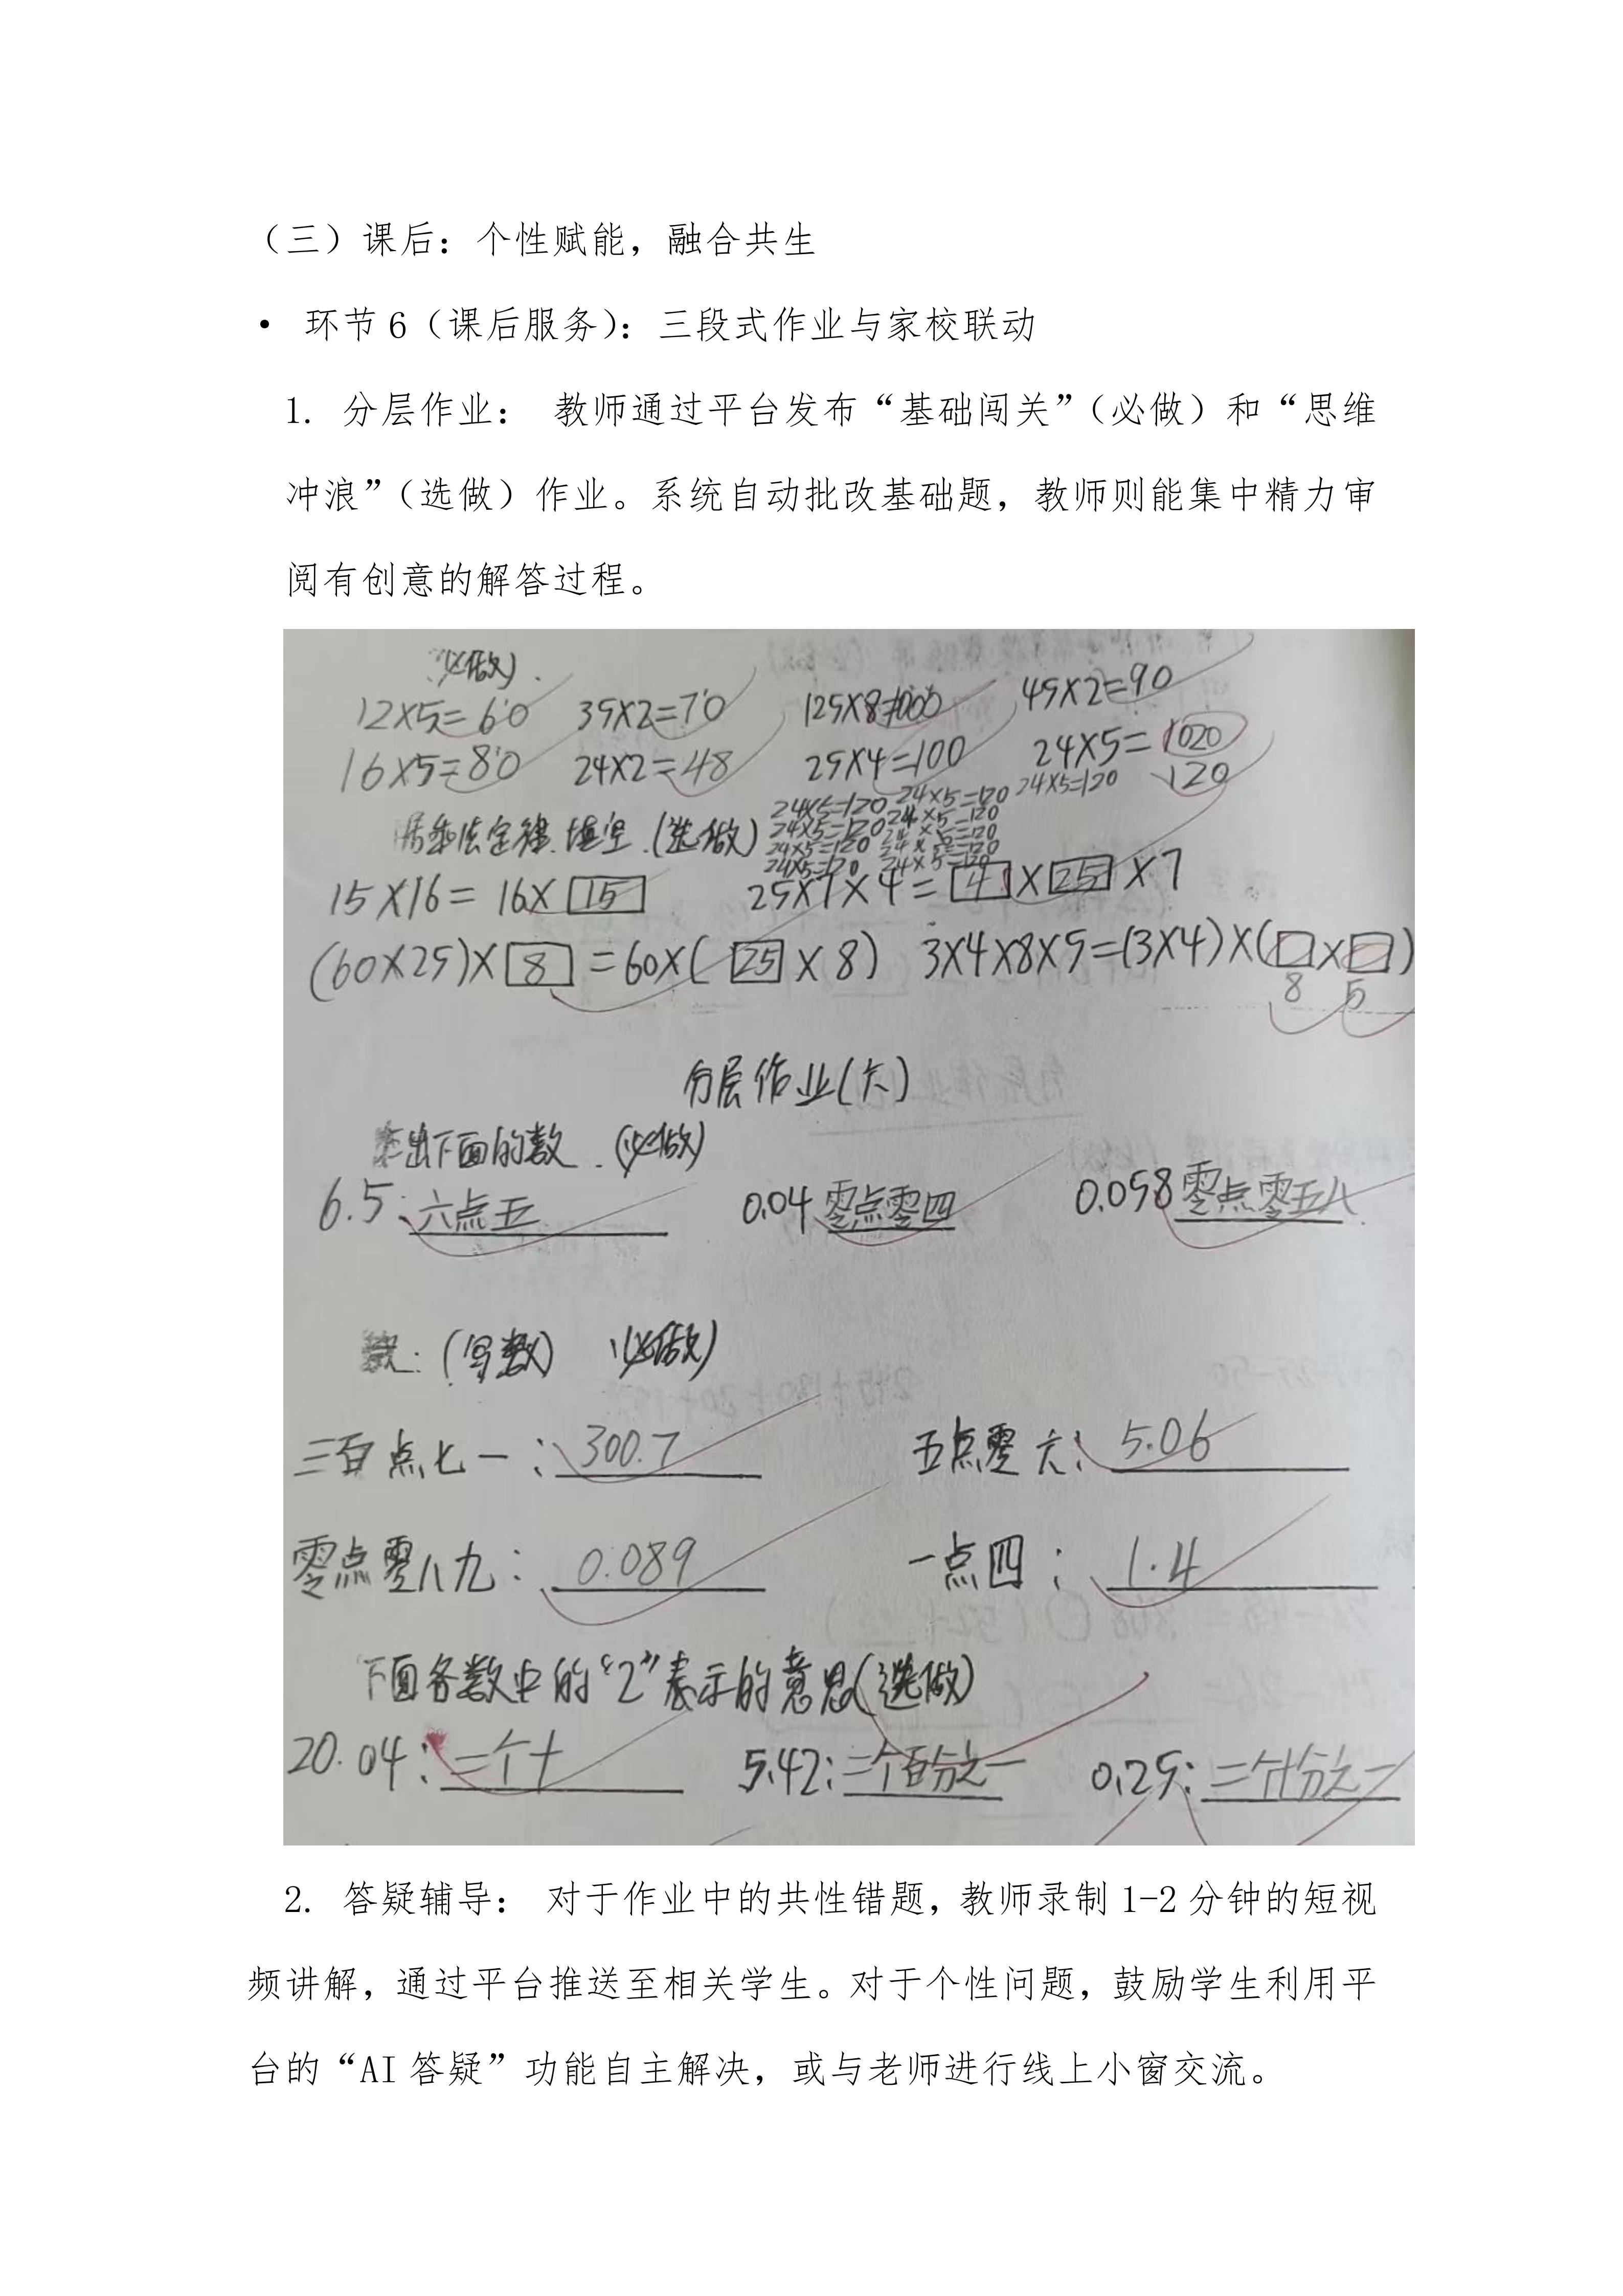 （三）课后：个性赋能，融合共生
• 环节6（课后服务）：三段式作业与家校联动
1. 分层作业： 教师通过平台发布“基础闯关”（必做）和“思维
冲浪”（选做）作业。系统自动批改基础题，教师则能集中精力审
阅有创意的解答过程。
必做）.
12×5=60 35×2=70 125×8=1000 45×2=90
16×5=80 24×2=48 25×4=100 24×5=1020
120
24×5=120 24×5=120 24×5=120
24×5=120 24×5=120
24×5=120 24×5=120
24×5=120 24×5=120
用乘法定律填空.(选做)
15×16=16×15 25×7×4=4×25×7
(60×25)×8=60×(25×8) 3×4×8×5=(3×4)×(□×□)
8 5
分层作业(六)
出下面的数.(必做)
6.5:六点五 0.04零点零四 0.058零点零五八
数.(写数) (必做)
三百点七一：300.7 五点零六：5.06
零点零八九：0.089 一点四：1.4
下面各数中的“2”表示的意思(选做)
20.04：二个十 5.42:二个百分之一 0.25:二个十分之一
2. 答疑辅导： 对于作业中的共性错题，教师录制1-2分钟的短视
频讲解，通过平台推送至相关学生。对于个性问题，鼓励学生利用平
台的“AI答疑”功能自主解决，或与老师进行线上小窗交流。